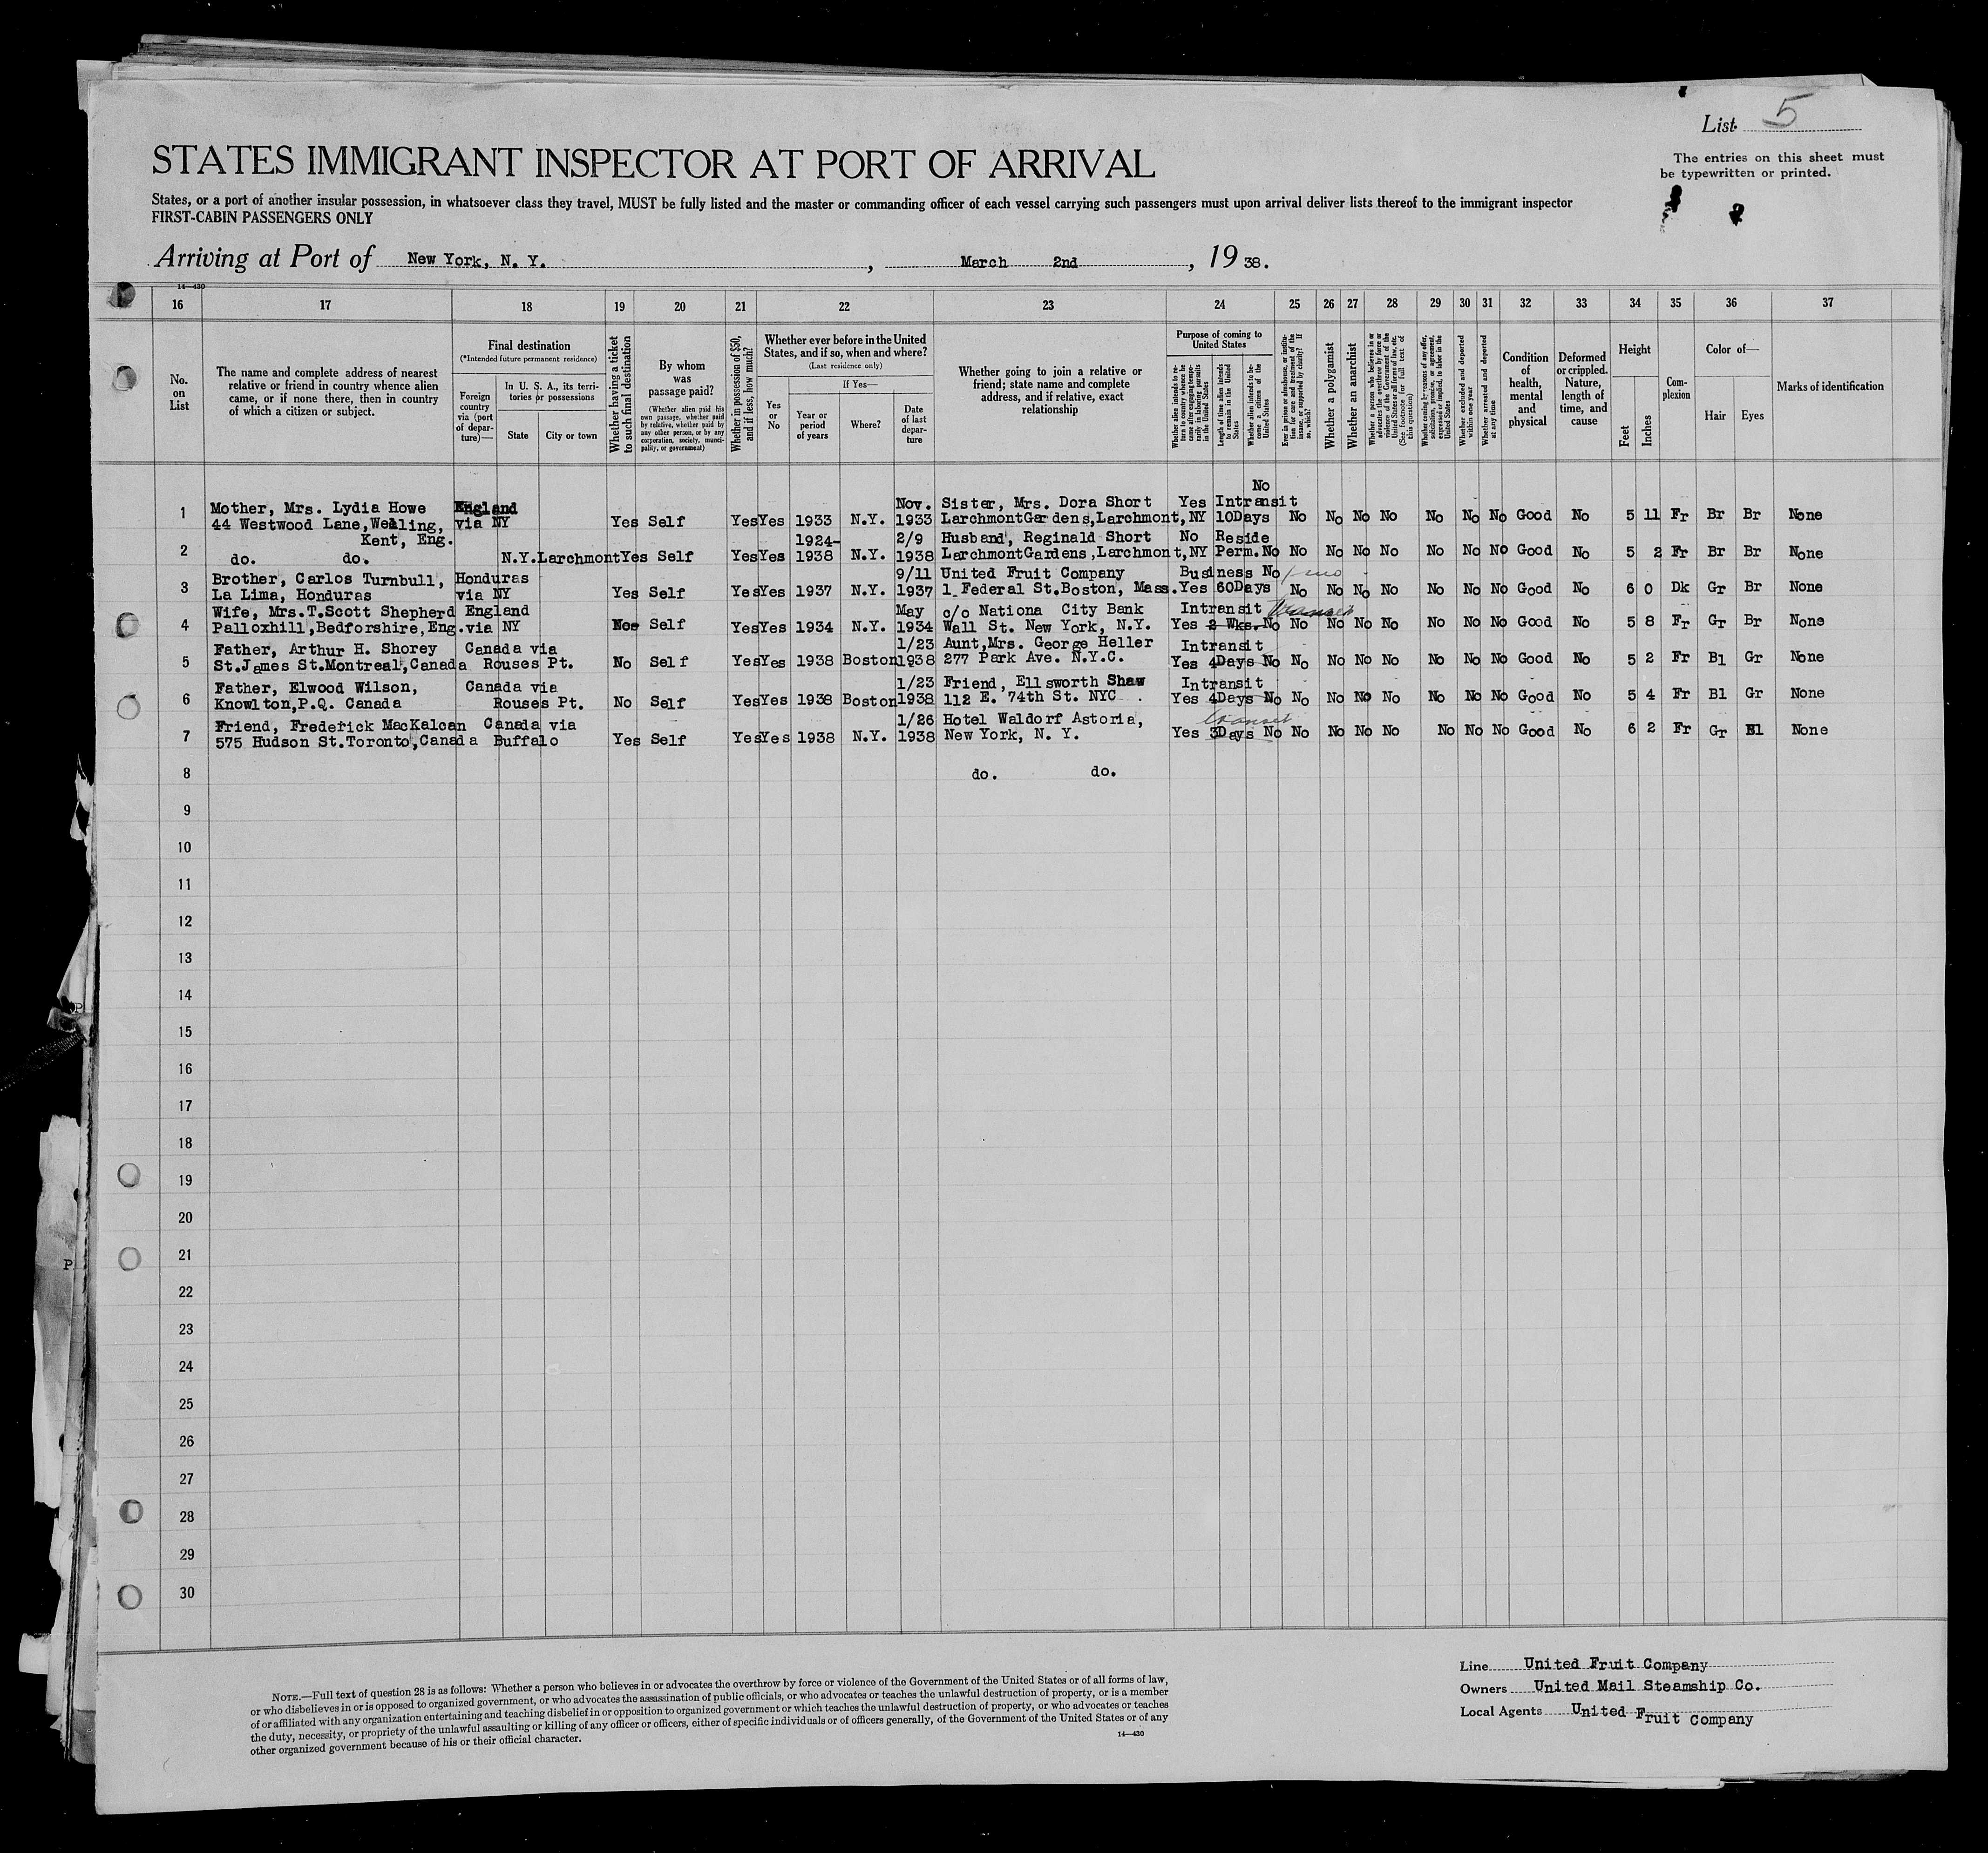 List 5
The entries on this sheet must
be typewritten or printed.
STATES IMMIGRANT INSPECTOR AT PORT OF ARRIVAL
States, or a port of another insular possession, in whatsoever class they travel, MUST be fully listed and the master or commanding officer of each vessel carrying such passengers must upon arrival deliver lists thereof to the immigrant inspector
FIRST-CABIN PASSENGERS ONLY
Arriving at Port of New York, N. Y. , March 2nd , 19 38.
14—430
16 17 18 19 20 21 22 23 24 25 26 27 28 29 30 31 32 33 34 35 36 37
No. on List
The name and complete address of nearest relative or friend in country whence alien came, or if none there, then in country of which a citizen or subject.
Final destination
(*Intended future permanent residence)
Foreign country via (port of departure)—
In U. S. A., its territories or possessions
State
City or town
Whether having a ticket to such final destination
By whom was passage paid?
(Whether alien paid his own passage, whether paid by relative, whether paid by any other person, or by any corporation, society, municipality, or government)
Whether in possession of $50, and if less, how much?
Whether ever before in the United States, and if so, when and where?
(Last residence only)
Yes or No
If Yes—
Year or period of years
Where?
Date of last departure
Whether going to join a relative or friend; state name and complete address, and if relative, exact relationship
Purpose of coming to United States
Whether alien intends to return to country whence he came after engaging temporarily in laboring pursuits in the United States
Length of time alien intends to remain in the United States
Whether alien intends to become a citizen of the United States
Ever in prison or almshouse, or institution for care and treatment of the insane, or supported by charity? If so, which?
Whether a polygamist
Whether an anarchist
Whether a person who believes in or advocates the overthrow by force or violence of the Government of the United States or all forms of law, etc. (See footnote for full text of this question)
Whether coming by reasons of any offer, solicitation, promise, or agreement, expressed or implied, to labor in the United States
Whether excluded and deported within one year
Whether arrested and deported at any time
Condition of health, mental and physical
Deformed or crippled. Nature, length of time, and cause
Height
Feet
Inches
Complexion
Color of—
Hair
Eyes
Marks of identification
No
1 Mother, Mrs. Lydia Howe England Nov. Sister, Mrs. Dora Short Yes Intransit
44 Westwood Lane, Welling, via NY Yes Self Yes Yes 1933 N.Y. 1933 LarchmontGardens,Larchmont,NY 10Days No No No No No No No Good No 5 11 Fr Br Br None
Kent, Eng. 1924- 2/9 Husband, Reginald Short No Reside
2 do. do. N.Y. Larchmont Yes Self Yes Yes 1938 N.Y. 1938 LarchmontGardens,Larchmont,NY Perm. No No No No No No No No Good No 5 2 Fr Br Br None
Brother, Carlos Turnbull, Honduras 9/11 United Fruit Company Business No
3 La Lima, Honduras via NY Yes Self Yes Yes 1937 N.Y. 1937 1 Federal St.Boston, Mass. Yes 60Days No No No No No No No Good No 6 0 Dk Gr Br None
Wife, Mrs.T.Scott Shepherd England May c/o Nationa City Bank Intransit
4 Palloxhill,Bedforshire,Eng. via NY Self Yes Yes 1934 N.Y. 1934 Wall St. New York, N.Y. Yes 2 Wks. No No No No No No No No Good No 5 8 Fr Gr Br None
Father, Arthur H. Shorey Canada via 1/23 Aunt,Mrs. George Heller Intransit
5 St.James St.Montreal,Canada Rouses Pt. No Self Yes Yes 1938 Boston 1938 277 Park Ave. N.Y.C. Yes 4Days No No No No No No No No Good No 5 2 Fr Bl Gr None
Father, Elwood Wilson, Canada via 1/23 Friend, Ellsworth Shaw Intransit
6 Knowlton,P.Q. Canada Rouses Pt. No Self Yes Yes 1938 Boston 1938 112 E. 74th St. NYC Yes 4Days No No No No No No No No Good No 5 4 Fr Bl Gr None
Friend, Frederick MacKalcan Canada via 1/26 Hotel Waldorf Astoria, transit
7 575 Hudson St.Toronto,Canada Buffalo Yes Self Yes Yes 1938 N.Y. 1938 New York, N. Y. Yes 3Days No No No No No No No No Good No 6 2 Fr Gr Bl None
8 do. do.
9
10
11
12
13
14
15
16
17
18
19
20
21
22
23
24
25
26
27
28
29
30
NOTE.—Full text of question 28 is as follows: Whether a person who believes in or advocates the overthrow by force or violence of the Government of the United States or of all forms of law,
or who disbelieves in or is opposed to organized government, or who advocates the assassination of public officials, or who advocates or teaches the unlawful destruction of property, or is a member
of or affiliated with any organization entertaining and teaching disbelief in or opposition to organized government or which teaches the unlawful destruction of property, or who advocates or teaches
the duty, necessity, or propriety of the unlawful assaulting or killing of any officer or officers, either of specific individuals or of officers generally, of the Government of the United States or of any
other organized government because of his or their official character.
14—430
Line United Fruit Company
Owners United Mail Steamship Co.
Local Agents United Fruit Company